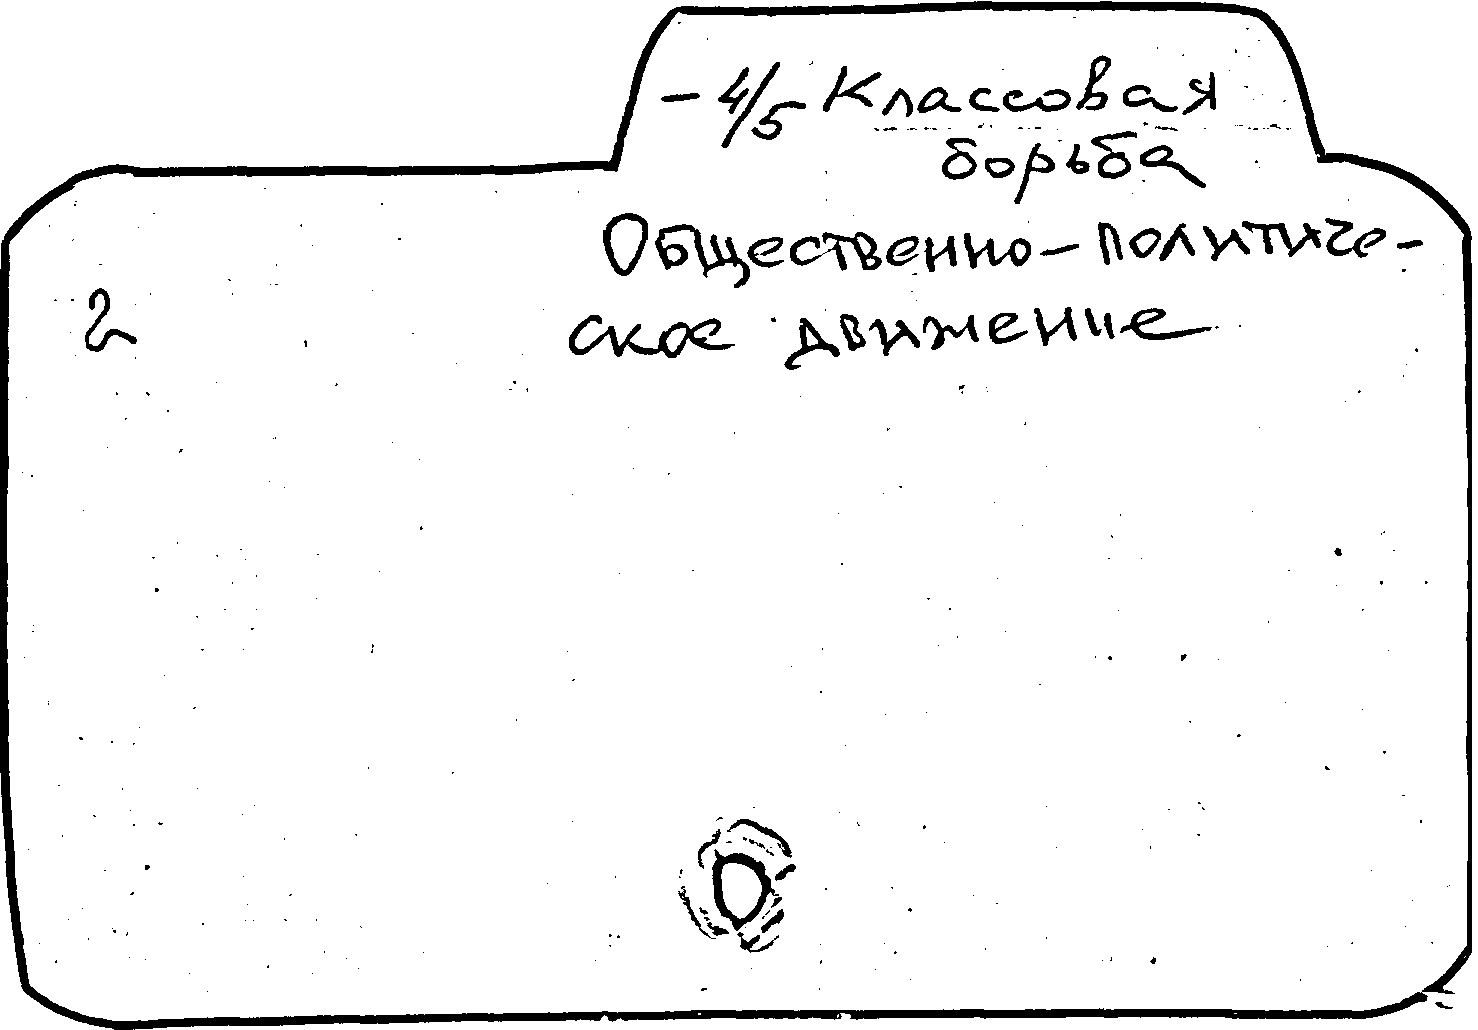 - 4/5 Классовая
борьба
Общественно-политиче-
ское движение
2